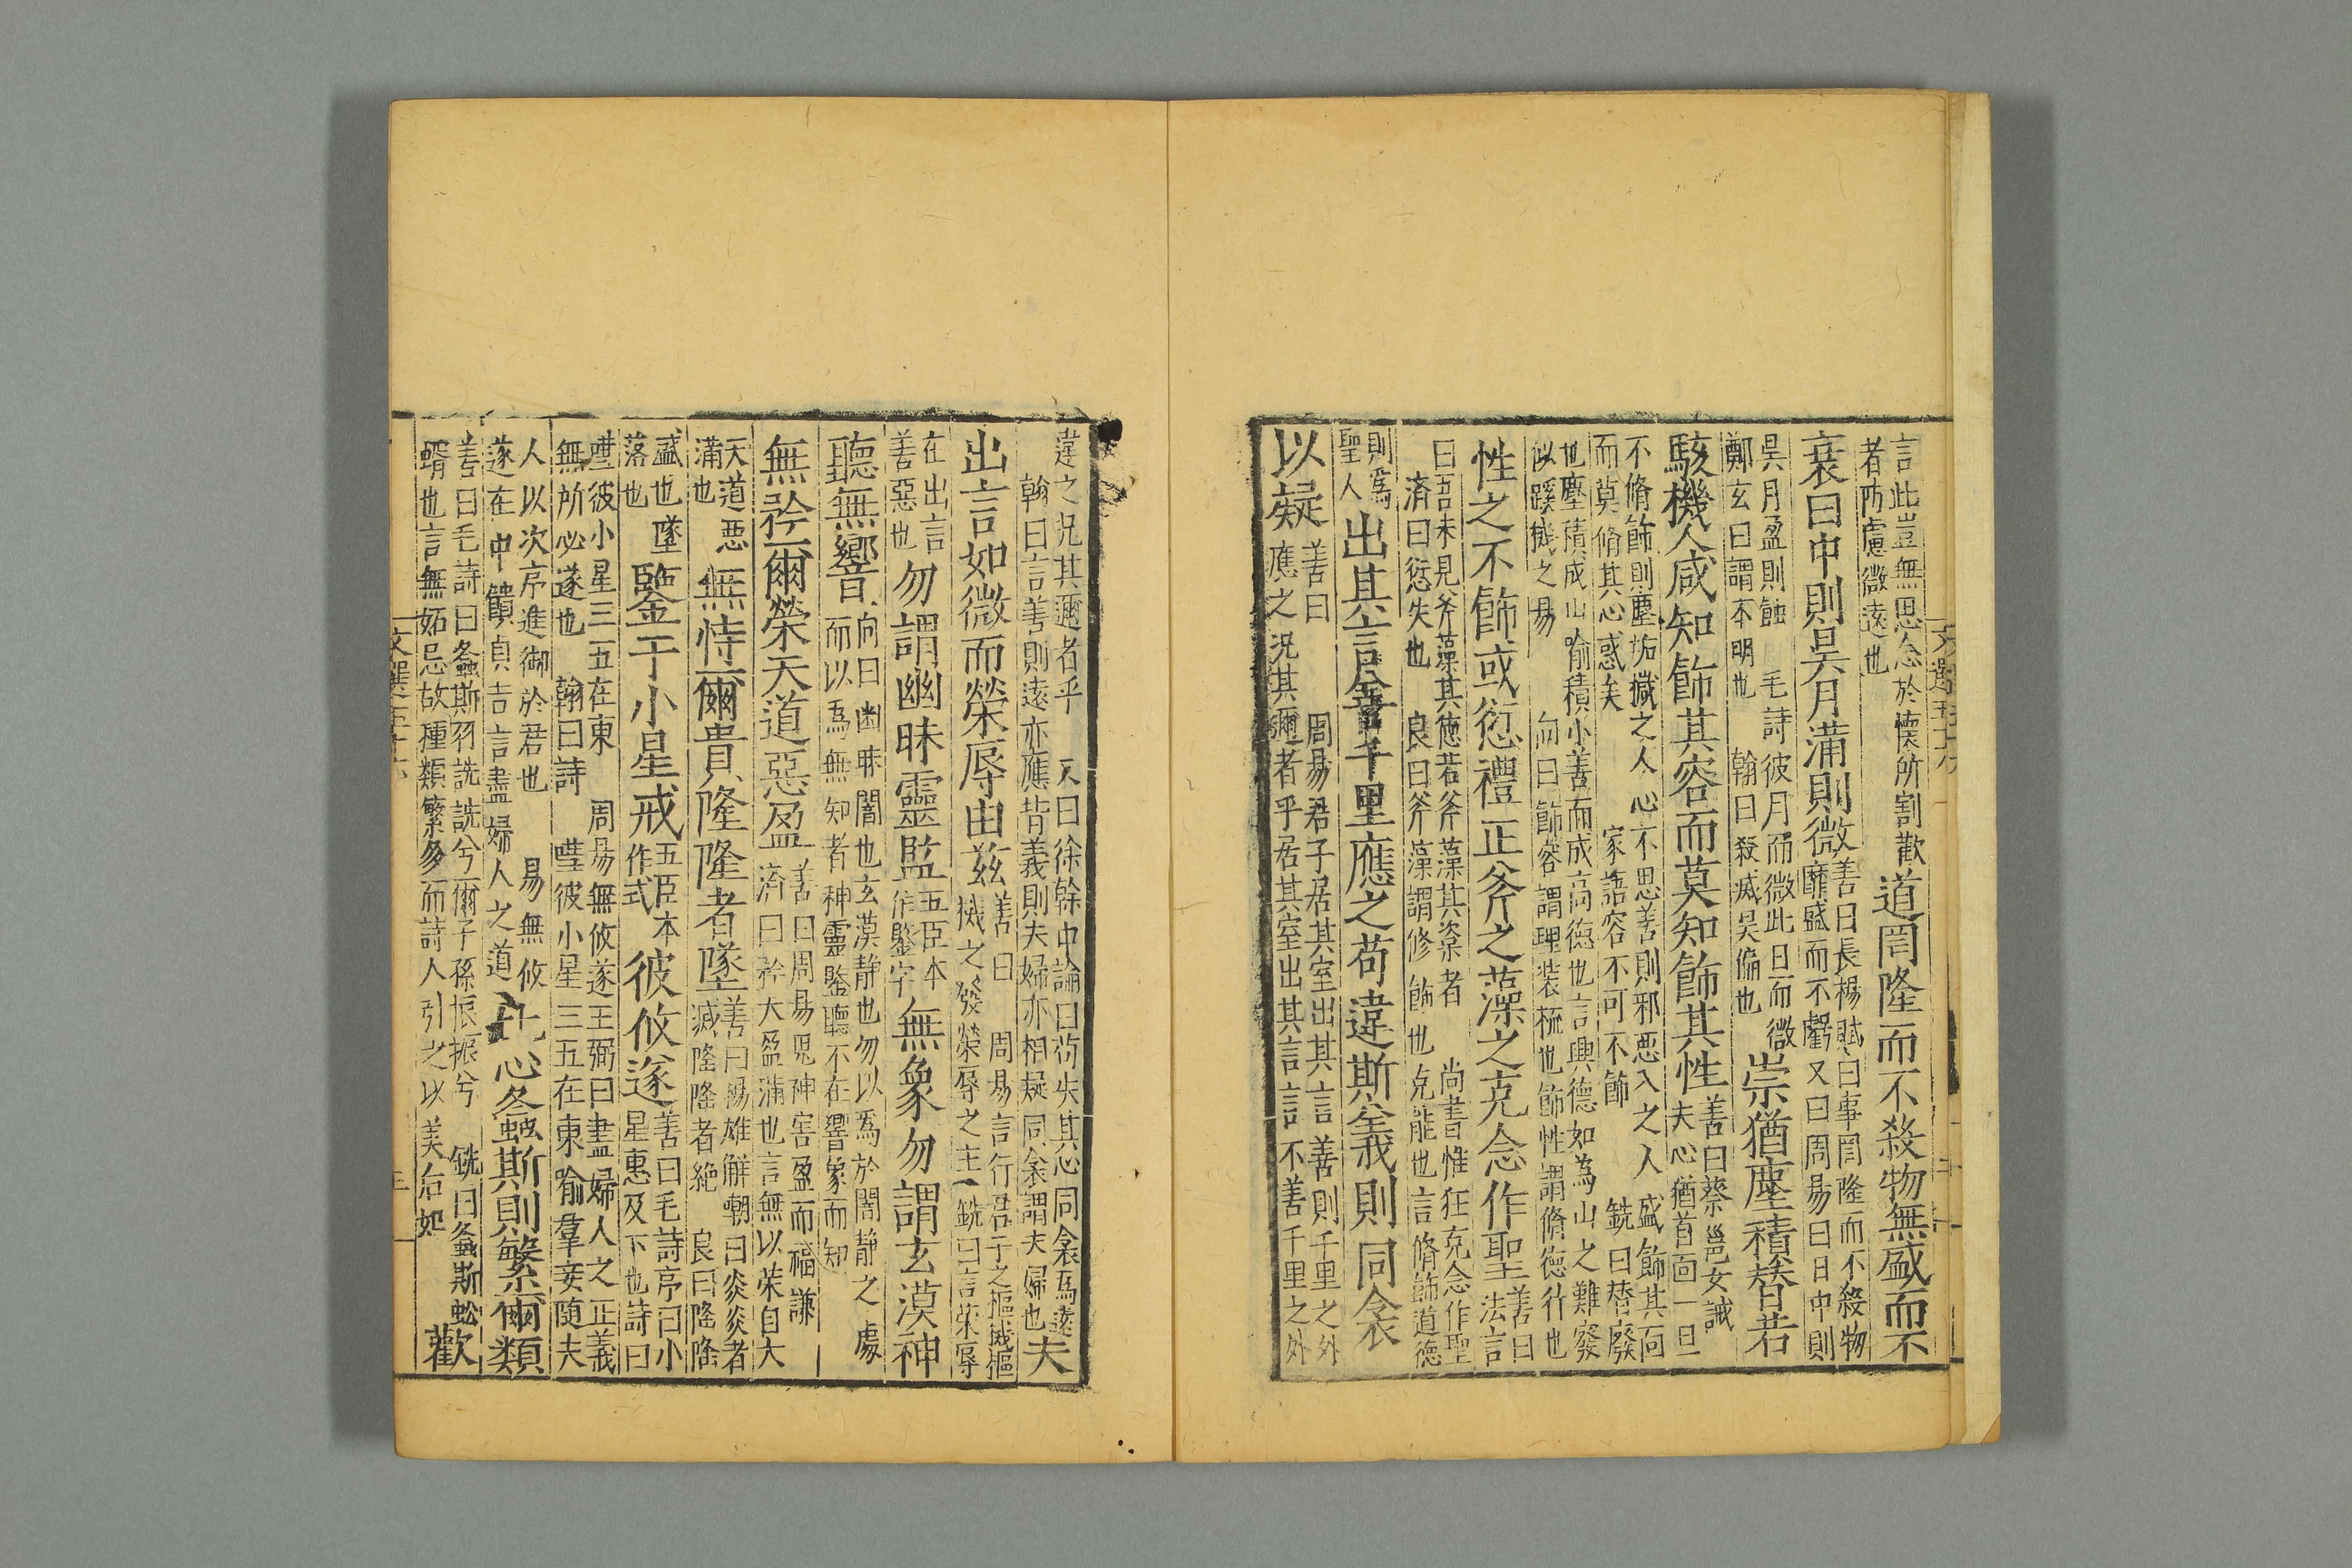 言此豈無思念於懷所割歡
者所慮微遠也
道罔隆而不殺物無盛而不
衰日中則昃月滿則微
善曰長楊賦曰事罔隆而不殺物
靡盛而不虧又曰周易曰日中則
昃月盈則蝕 毛詩彼月而微此日而微
鄭玄曰謂不明也 翰曰殺滅昃偏也
崇猶塵積替若
駭機人咸知飾其容而莫知飾其性
善曰蔡邕女誡
夫心猶首面一旦
不脩飾則塵垢穢之人心不思善則邪惡入之人盛飾其面
而莫脩其心惑矣 家語容不可不飾 銑曰替廢
也塵積成山喻積小善而成高德也言興德如為山之難廢
似蹊機之易 向曰飾容謂理裝梳也飾性謂脩德行也
性之不飾或愆禮正斧之藻之克念作聖
善曰
法言
曰吾未見斧藻其德若斧藻其楶者 尚書惟狂克念作聖
濟曰愆失也 良曰斧藻謂修飾也克能也言脩飾道德
則爲
聖人
出其言善千里應之苟違斯義則同衾
以疑
善曰 周易君子居其室出其言善則千里之外
應之況其邇者乎居其室出其言言不善千里之外
違之況其邇者乎 又曰徐幹中論曰苟失其心同衾爲遠
翰曰言善則遠亦應背義則夫婦亦相疑同衾謂夫婦也
夫
出言如微而榮辱由兹
善曰 周易言行君子之樞機樞
機之發榮辱之主 銑曰言榮辱
在出言
善惡也
勿謂幽昧靈監
五臣本
作鑒字
無象勿謂玄漠神
聽無響
向曰幽昧闇也玄漠静也勿以爲於闇静之處
而以爲無知者神靈鑒聽不在響象而知
無矜爾榮天道惡盈
善曰周易鬼神害盈而福謙
濟曰矜大盈滿也言無以榮自大
天道惡
滿也
無恃爾貴隆隆者墜
善曰揚雄解嘲曰炎炎者
滅隆隆者絶 良曰隆隆
盛也墜
落也
鑒于小星戒
五臣本
作式
彼攸遂
善曰毛詩序曰小
星惠及下也詩曰
嘒彼小星三五在東 周易無攸遂王弼曰盡婦人之正義
無所必遂也 翰曰詩嘒彼小星三五在東喻羣妾随夫
人以次序進御於君也 易無攸
遂在中饋貞吉言盡婦人之道
比心螽斯則繁爾類
善曰毛詩曰螽斯羽詵詵兮爾子孫振振兮 銑曰螽斯蚣
蝑也言無妬忌故種類繁多而詩人引之以美后妃
歡
文選五十六
文選五十六